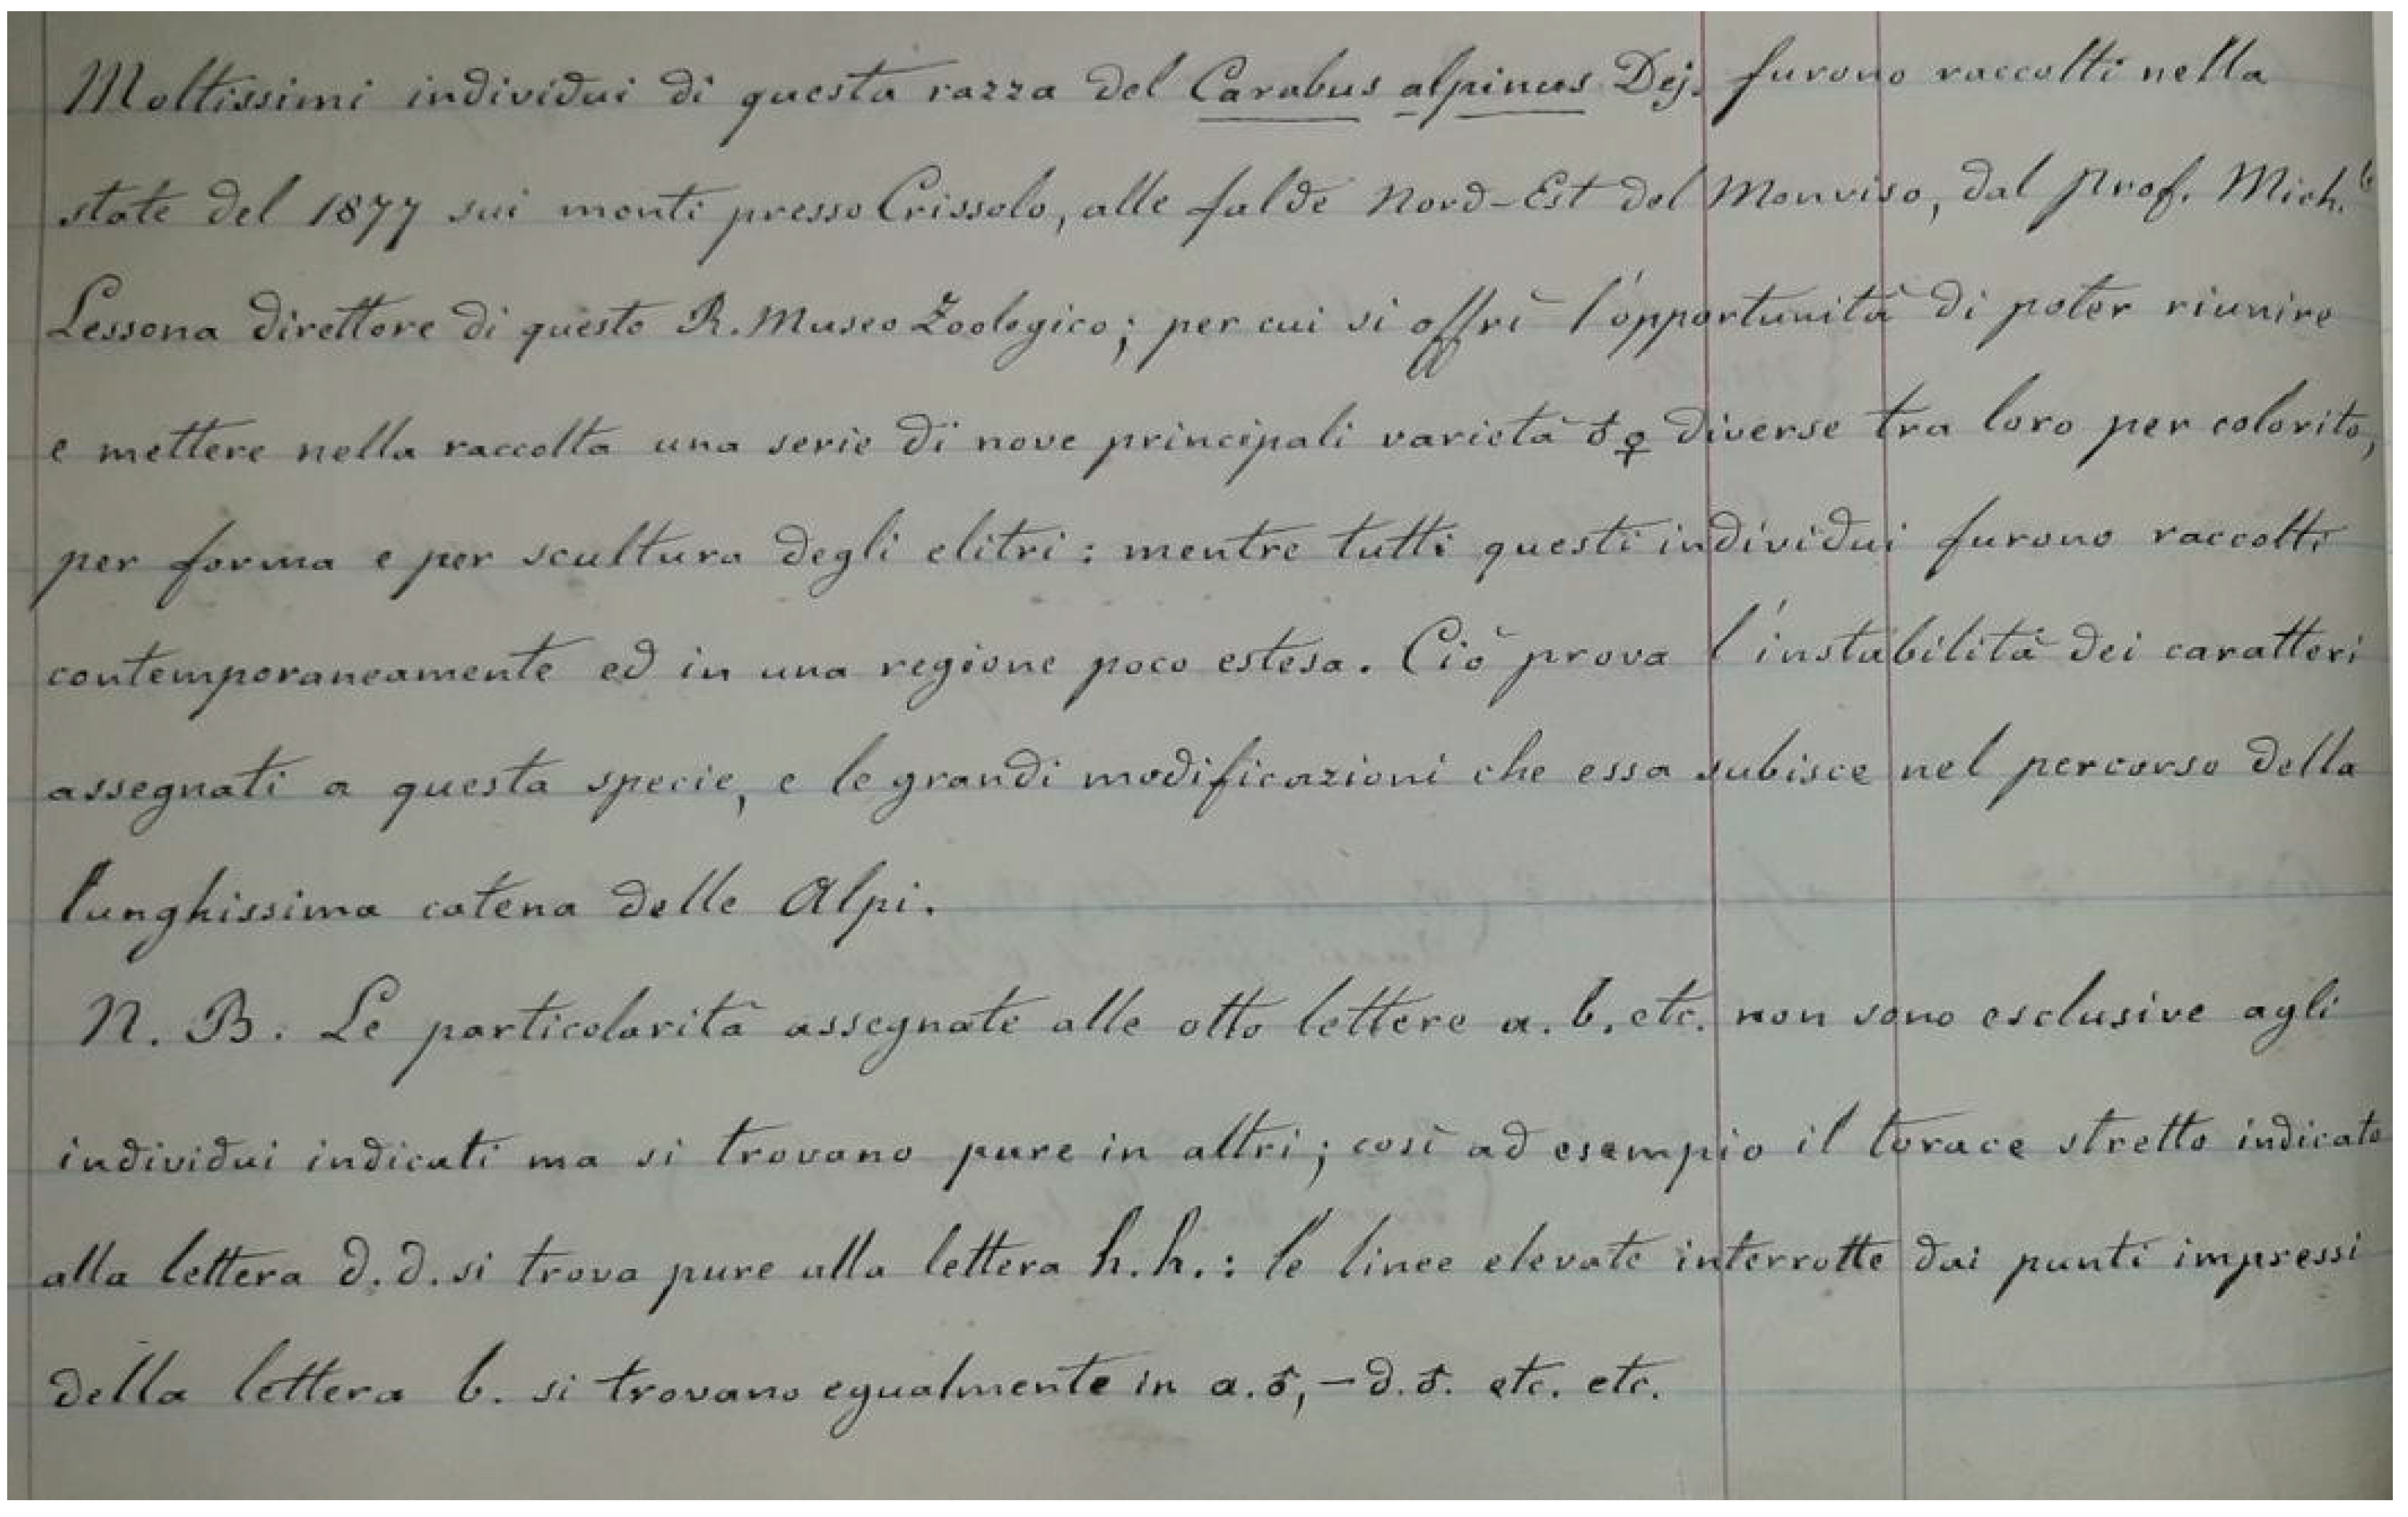 Moltissimi individui di questa razza del Carabus alpinus Dej. furono raccolti nella
state del 1877 sui monti presso Crissolo, alle falde Nord-Est del Monviso, dal prof. Mich.le
Lessona direttore di questo R. Museo Zoologico; per cui si offrì l'opportunità di poter riunire
e mettere nella raccolta una serie di nove principali varietà ♂ ♀ diverse tra loro per colorito,
per forma e per scultura degli elitri: mentre tutti questi individui furono raccolti
contemporaneamente ed in una regione poco estesa. Ciò prova l'instabilità dei caratteri
assegnati a questa specie, e le grandi modificazioni che essa subisce nel percorso della
lunghissima catena delle Alpi.
N. B. Le particolarità assegnate alle otto lettere a. b. etc. non sono esclusive agli
individui indicati ma si trovano pure in altri; così ad esempio il torace stretto indicato
alla lettera d. d. si trova pure alla lettera h. h.: le linee elevate interrotte dai punti impressi
della lettera b. si trovano egualmente in a. ♂, - d. ♂. etc. etc.